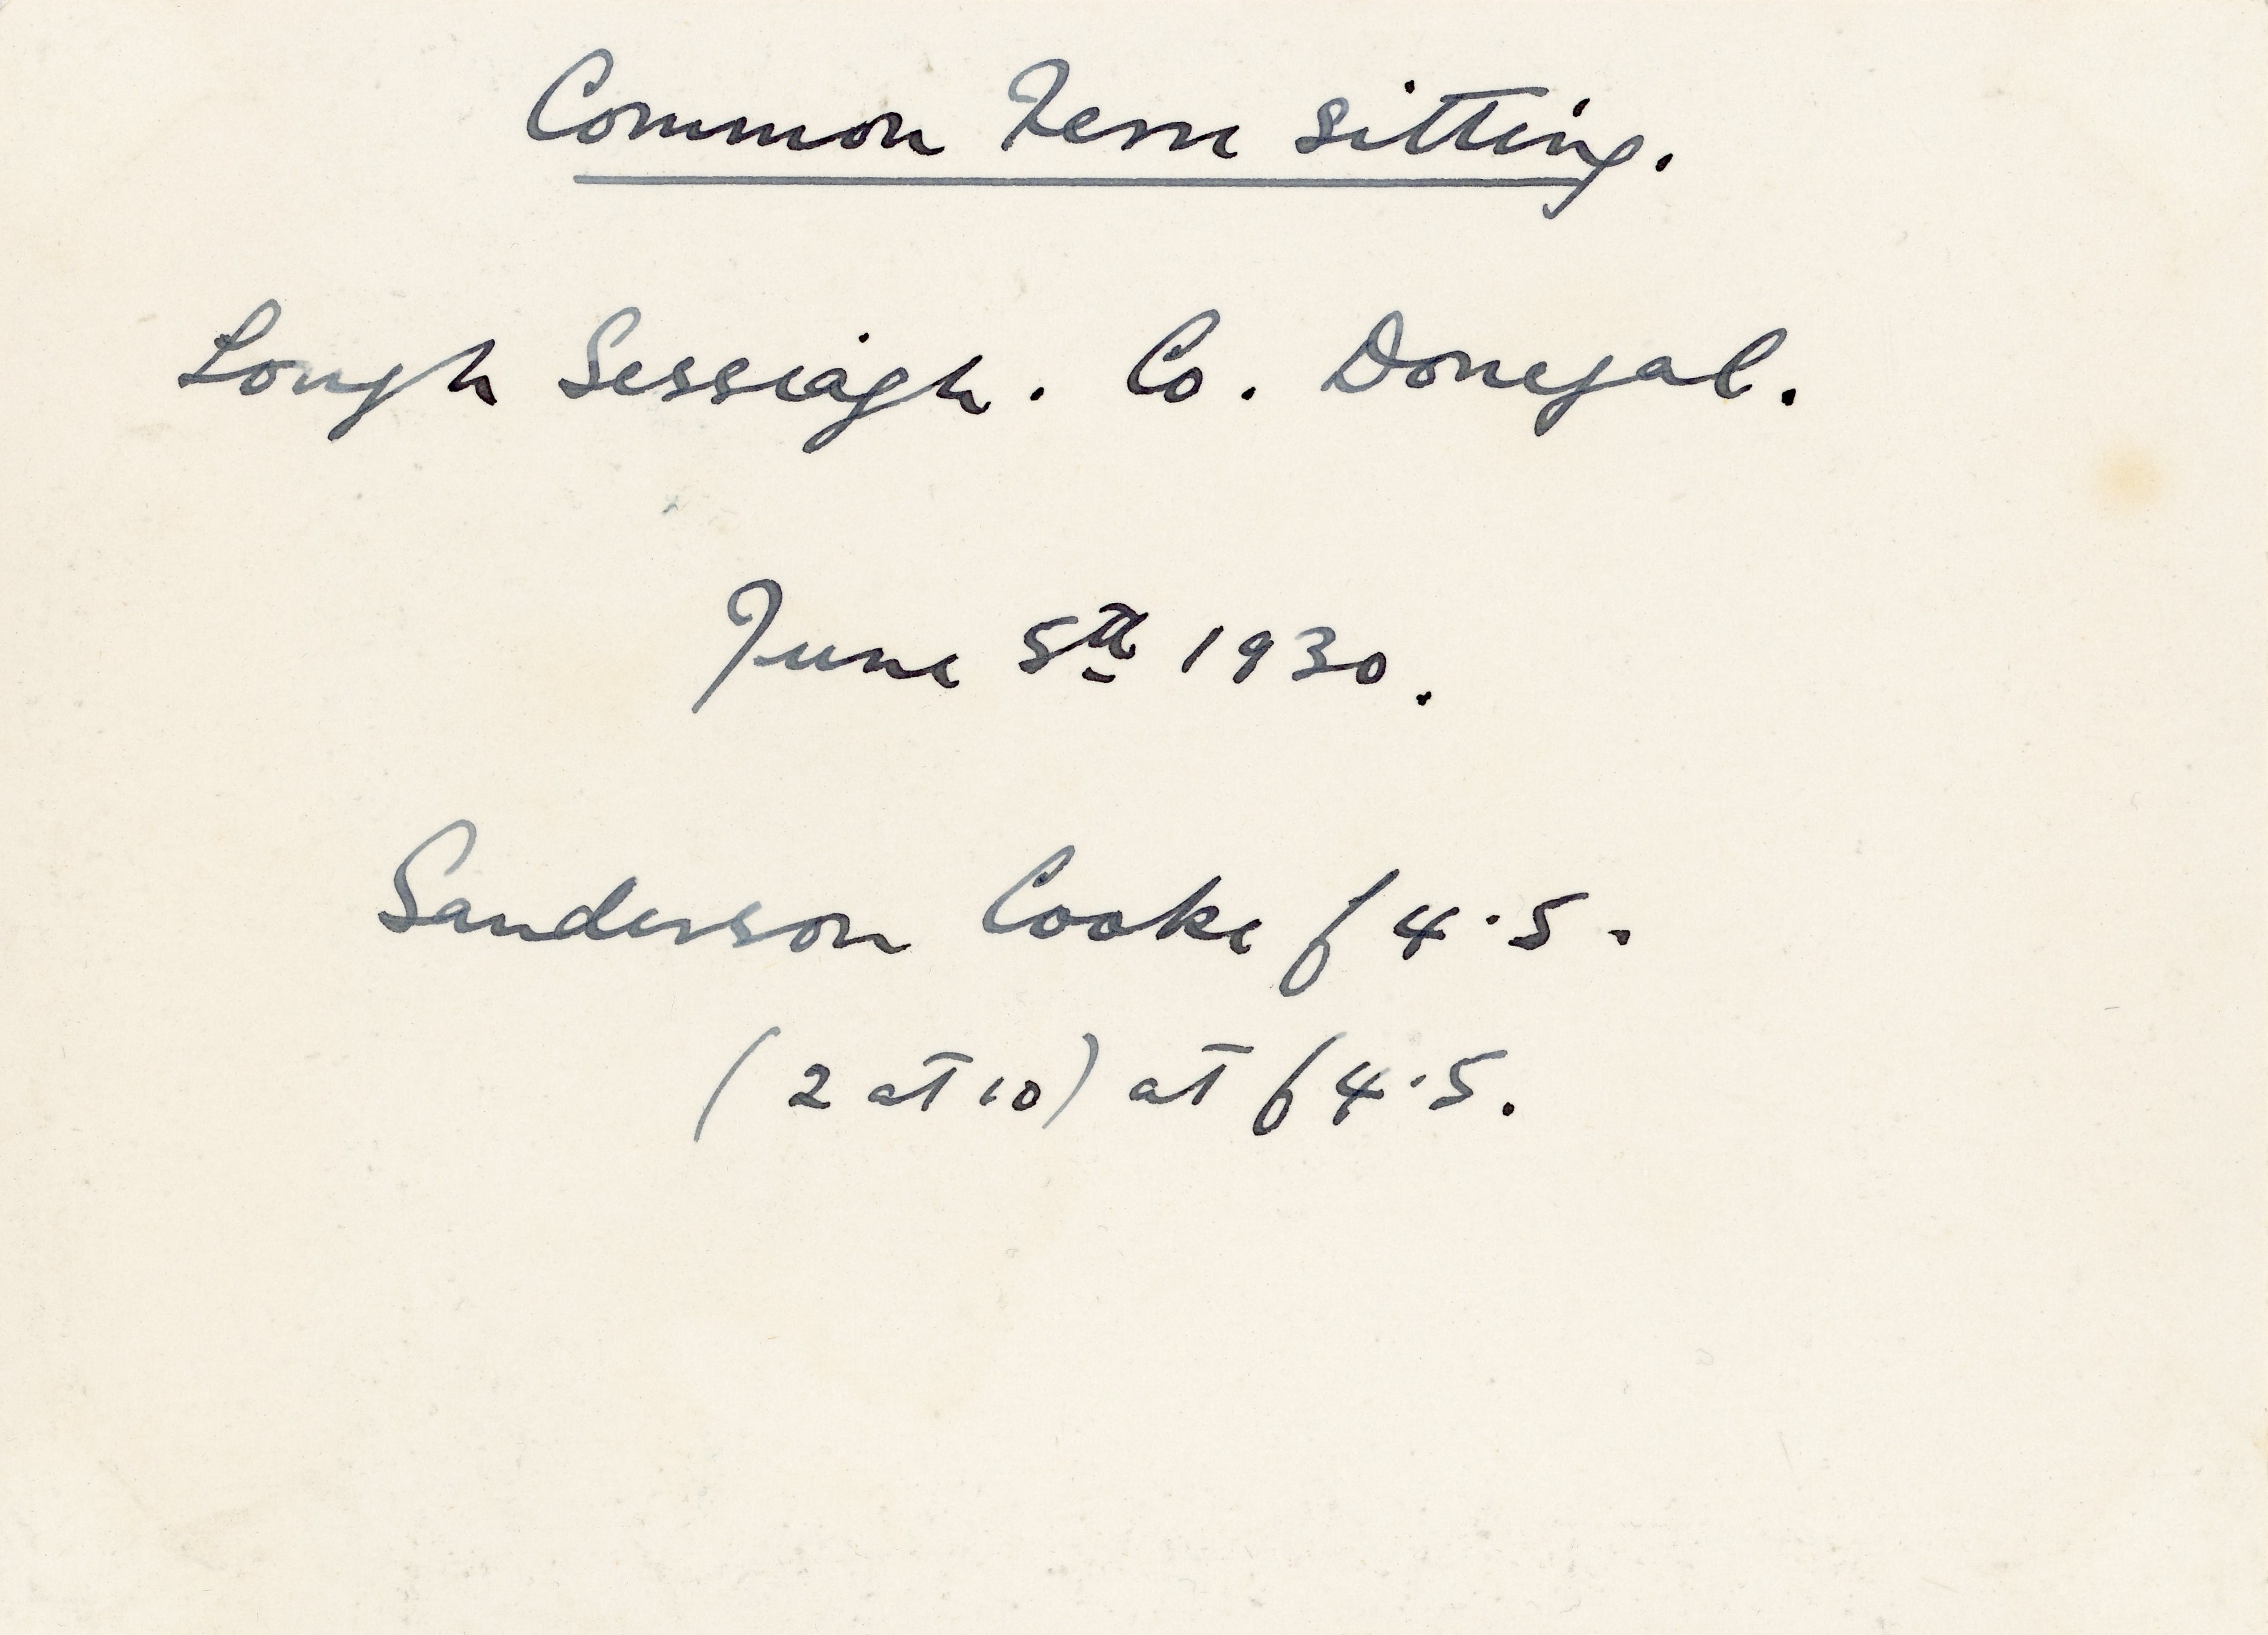 Common Tern sitting.
Lough Sessiagh. Co. Donegal.
June 5th 1930.
Sanderson Cooke f4·5.
(2 at 10) at f4·5.